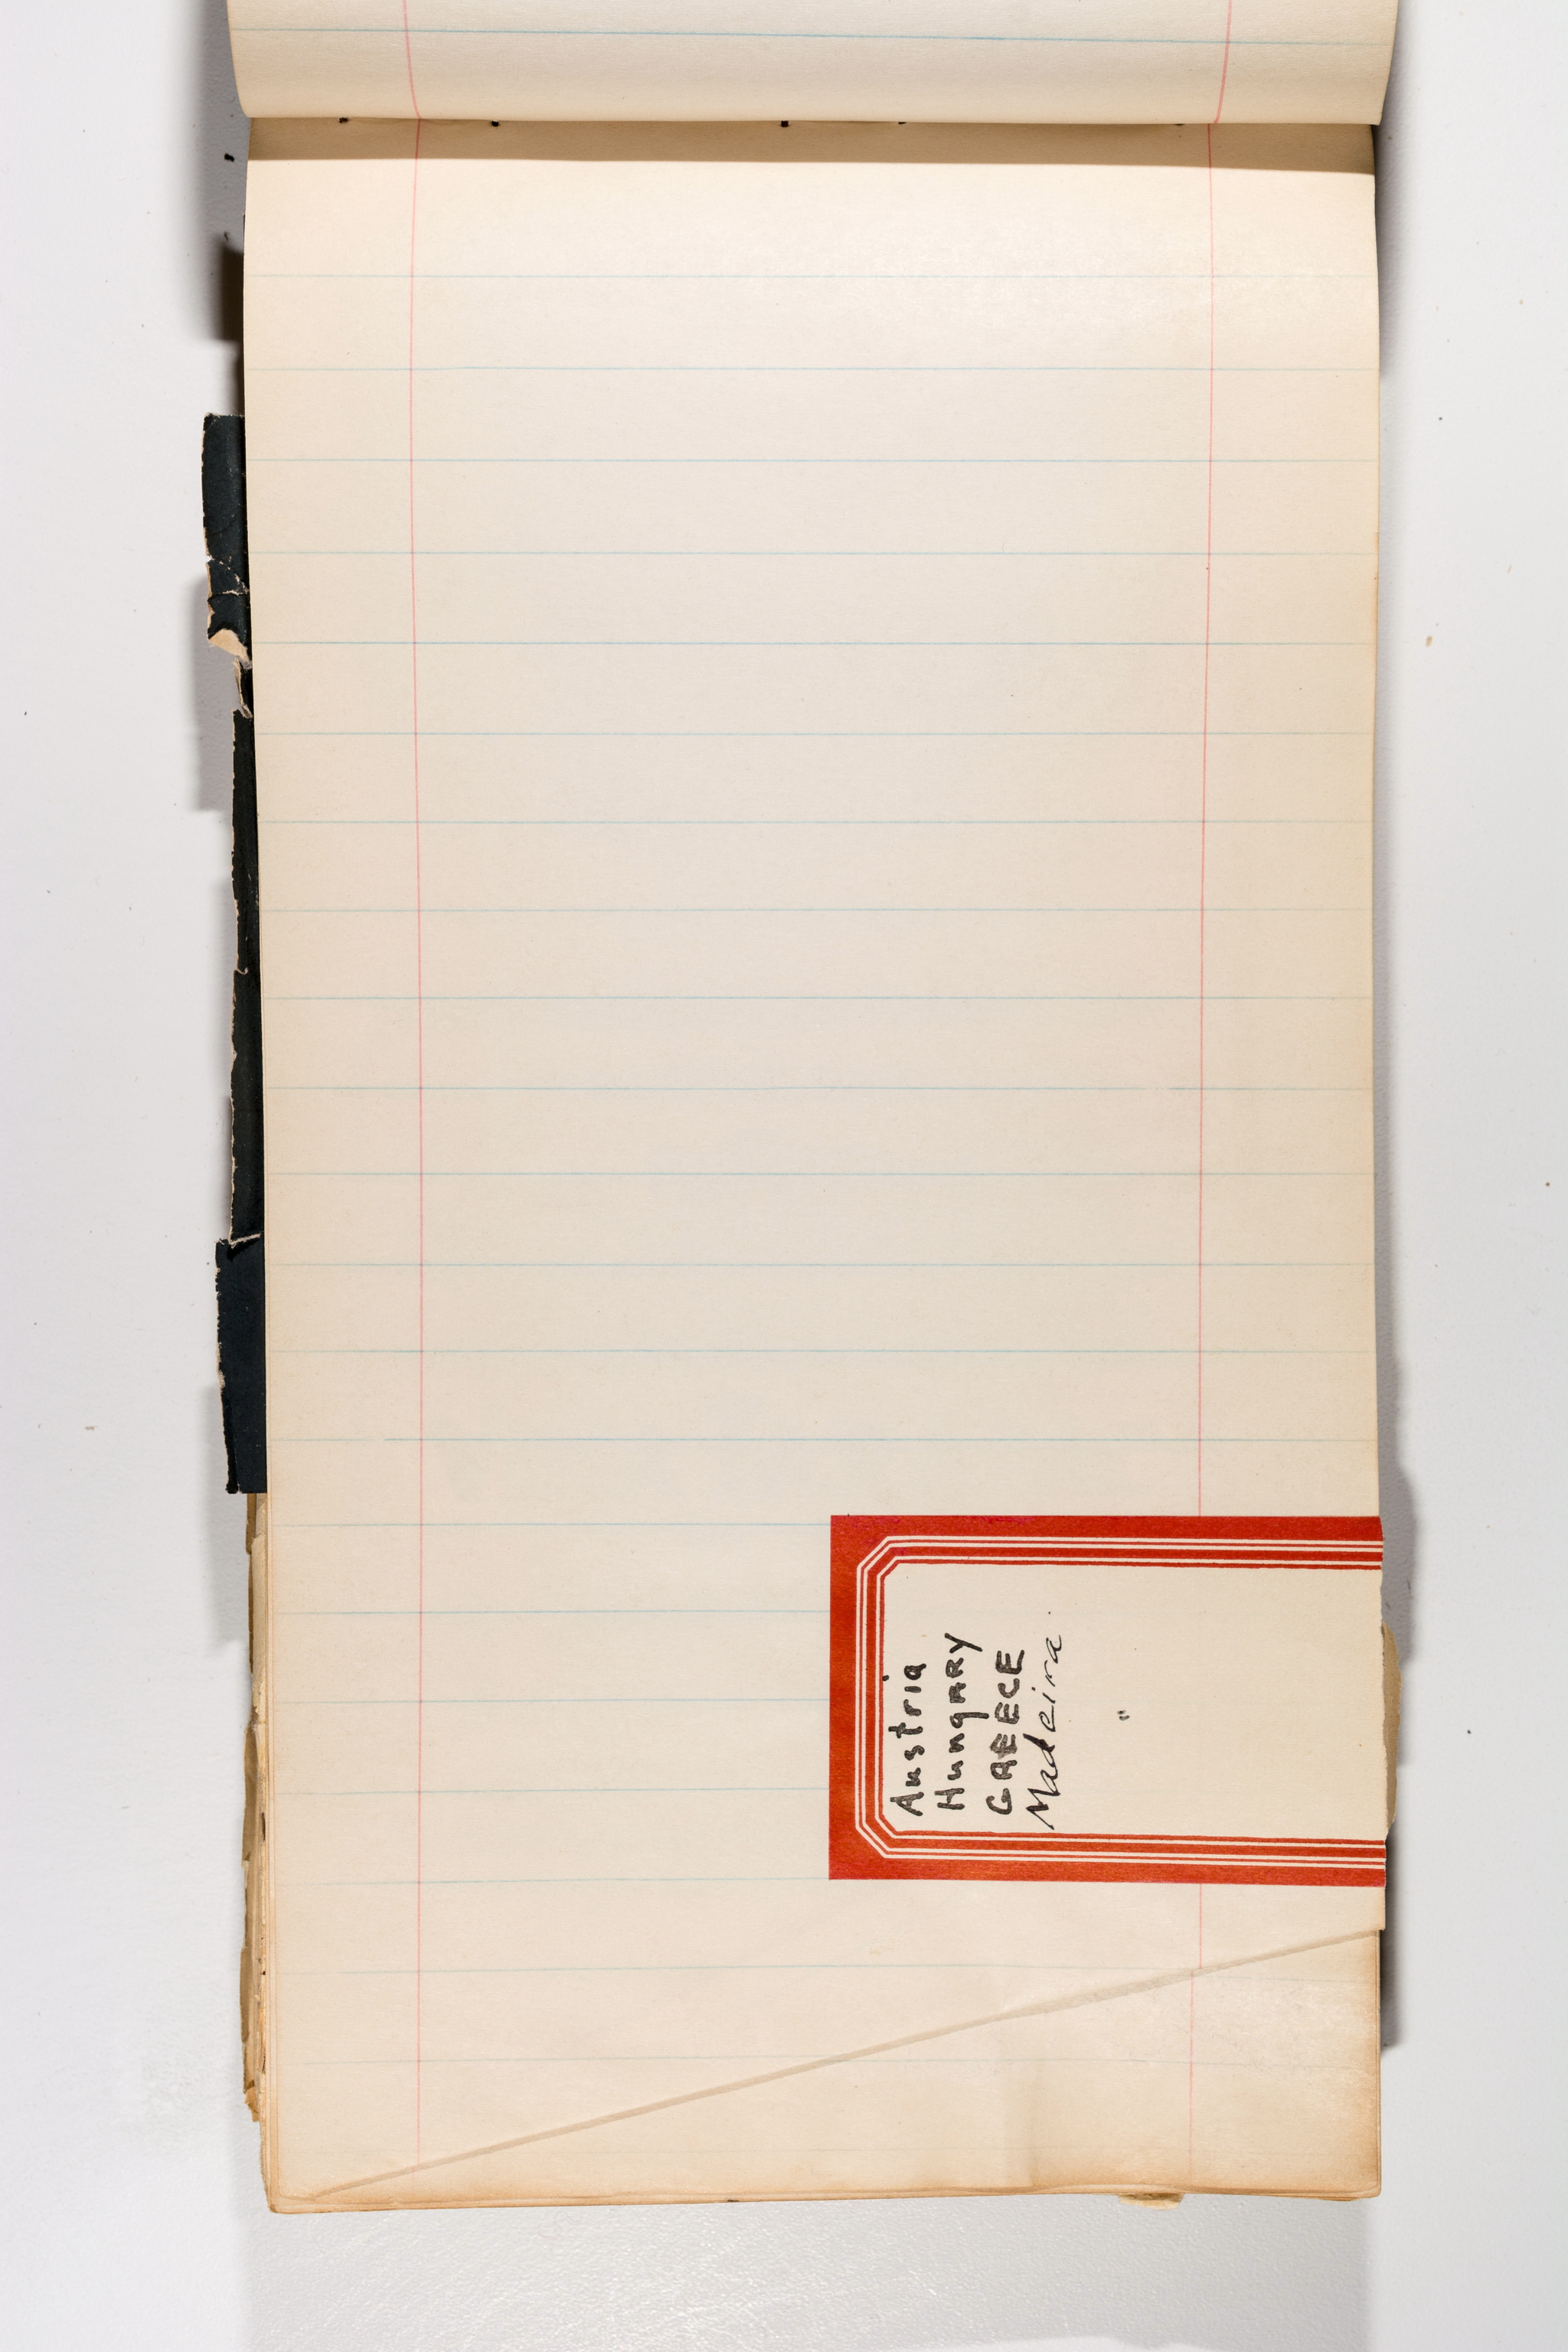 Austria
HungARY
GREECE
Madeira
"